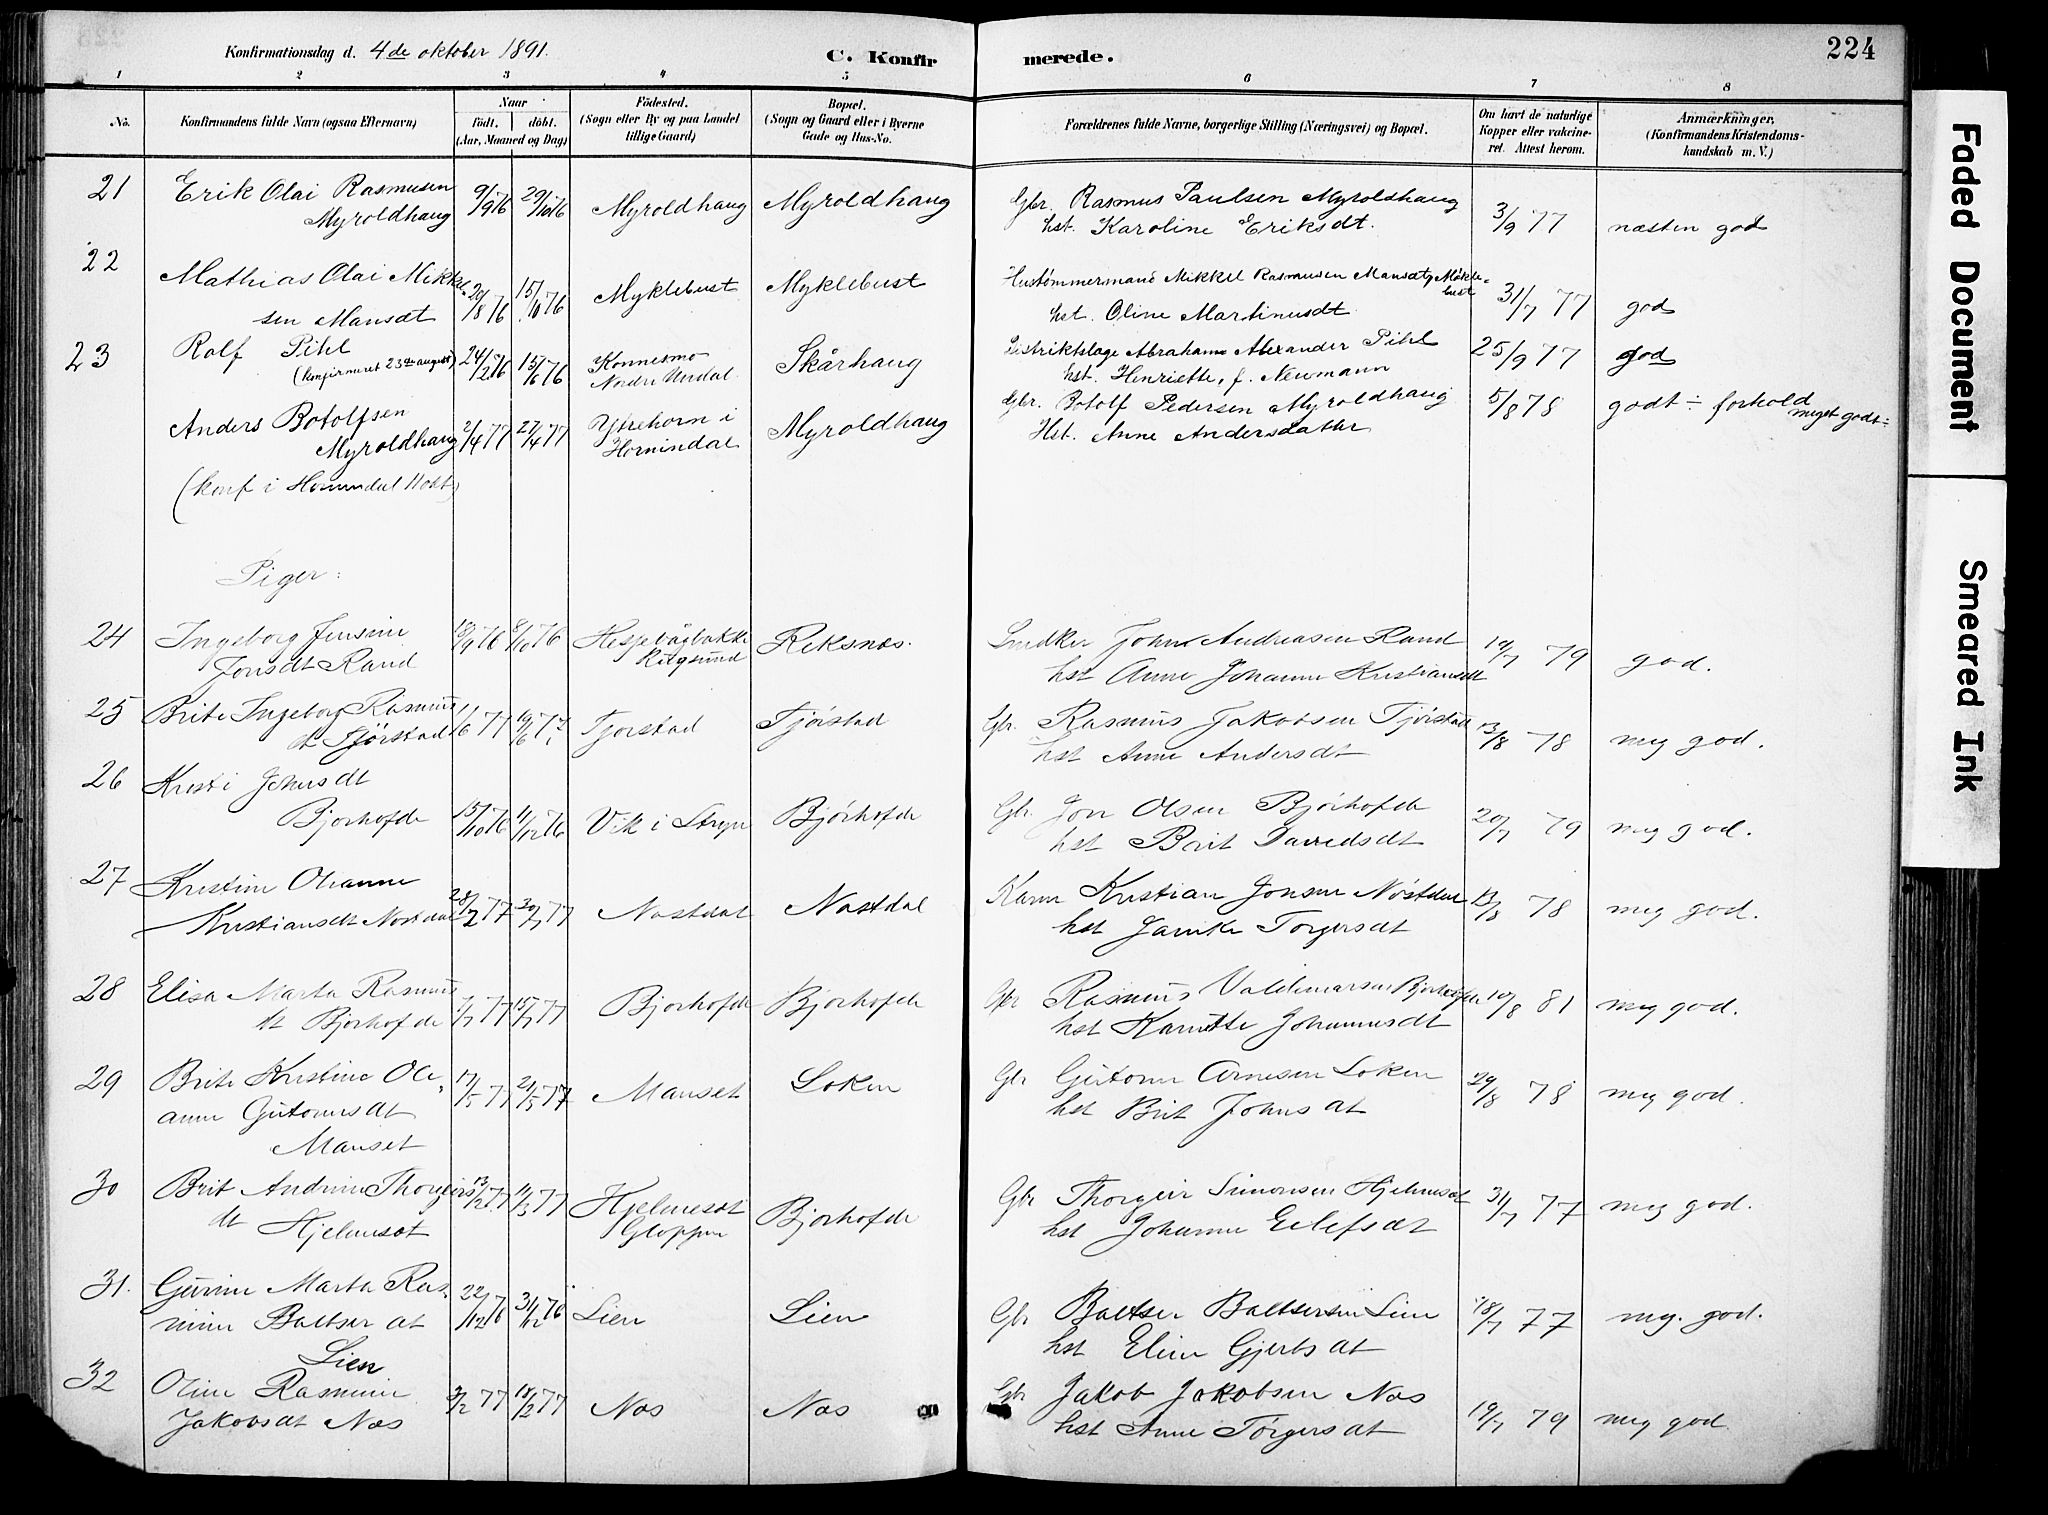 Konfirmationsdag d. 4de oktober 1891.
C. Konfirmerede.
224
1 2 3 4 5 6 7 8
No.
Konfirmandens fulde Navn (ogsaa Efternavn)
Naar
født. døbt.
(Aar, Maaned og Dag)
Fødested.
(Sogn eller By og paa Landet tillige Gaard)
Bopæl.
(Sogn og Gaard eller i Byerne Gade og Hus-No.
Forældrenes fulde Navne, borgerlige Stilling (Næringsvei) og Bopæl.
Om havt de naturlige Kopper eller vakcineret. Attest herom.
Anmærkninger,
(Konfirmandens Kristendomskundskab m. V.)
21 Erik Olai Rasmusen Myroldhaug 9/9 76 29/10 76 Myroldhaug Myroldhaug Gbr. Rasmus Paulsen Myroldshaug hst. Karoline Eriksdt. 3/9 77 næsten god
22 Mathias Olai Mikkelsen Mansæt 20/8 76 15/10 76 Myklebust Myklebust Hustømmermand Mikkel Rasmusen Mansæt, Møklebust hst. Oline Martinusdt. 31/7 77 god
23 Rolf Pihl (konfirmeret 23de august) 24/2 76 15/6 76 Konnesmo Nordre Undal Skårhaug Distriktslæge Abraham Alexander Pihl hst. Henriette, f. Neumann 25/9 77 god
Anders Botolfsen Myroldhaug 2/4 77 27/4 77 Ytrehorn i Hornindal Myroldhaug Gbr. Botolf Pedersen Myroldhaug Hst. Anne Andersdatter 5/8 78 godt ÷ forhold meget godt ÷
(konf i Hornindal
Piger:
24 Ingeborg Jensine Jonsdt Rand 18/9 76 8/10 76 Rugsund Reksnes. John Andreasen Rand hst Anne Johanne Kristiansdt 19/7 79 god.
25 Brite Ingeborg Rasmusdt Tjørstad 1/6 77 10/6 77 Tjørstad Tjørstad Gbr. Rasmus Jakobsen Tjørstad hst Anne Andersdt 13/8 78 meg god.
26 Kristi Johnsdt Bjørhofde 15/10 76 11/12 76 Vik i Stryn Bjørhofde Gbr Jon Olsen Bjørhofde hst Brit Davidsdt 20/7 79 meg god.
27 Kristine Oleanne Kristiansdt Nøstdal 28/2 77 30/7 77 Nøstdal Nøstdal Kristian Jonsen Nøstdal hst Jamike Torgersdt 13/8 78 meg god.
28 Elisa Marta Rasmusdt Bjørhofde 7/7 77 15/7 77 Bjørhofde Bjørhofde Gbr Rasmus Valdemarsen Bjørhofde hst Karitte Johannesdt 10/8 81 meg god.
29 Brite Kristine Oleanne Guttormsdt Manset 17/5 77 21/5 77 Manset Loken Gbr Guttorm Arnesen Loken hst Brit Johnsdt 29/8 78 meg god.
30 Brit Andrine Thorgeirsdt Hjelmeset 13/2 77 11/3 77 Hjelmeset Gloppen Bjørhofde Gbr Thorgeir Simonsen Hjelmeset hst Johanne Eilefsdt 31/7 77 meg god.
31. Gurine Marta Rasmine Baltserdt Lien 22/12 76 31/12 76 Lien Lien Gbr Baltser Baltsersen Lien hst Eline Gjertsdt 18/7 77 meg. god.
32 Oline Rasmine Jakobsdt Nos 3/2 77 18/2 77 Nos Nos Gbr Jakob Jakobsen Nos hst Anne Torgersdt 19/7 79 meg god
Faded Document
Smeared Ink